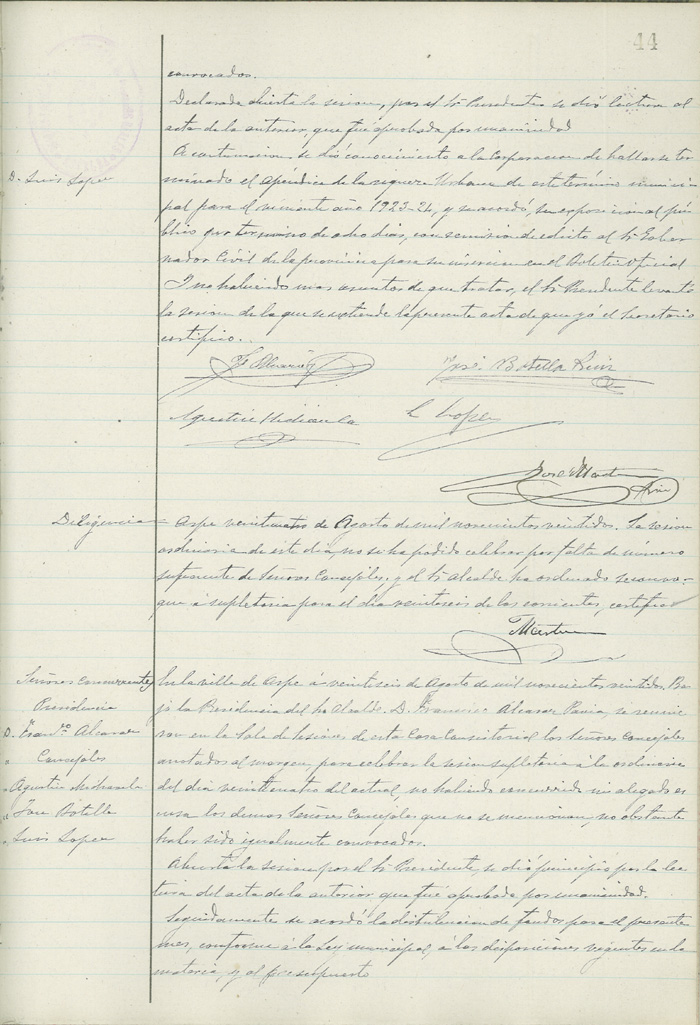 44
convocados.
Declarada abierta la sesion, por el Sr. Presidente se dió lectura al
acta de la anterior, que fué aprobada por unanimidad
D. Luis Lopez
A continuacion se dió conocimiento a la Corporacion de hallarse ter
minado el apéndice de la riqueza Urbana de este término munici
pal para el viniente año 1923-24, y se acordó, su exposicion al pú
blico por termino de ocho dias, con remision de edicto al Sr. Gober
nador Civil de la provincia para su insercion en el Boletin Oficial
I no habiendo mas asuntos de que tratar, el Sr. Presidente levantó
la sesion de la que se extiende la presente acta de que yó el Secretario
certifico.
F. Alcaraz
José Botella Ruiz
Agustin Mediavila
L. Lopez
Jose Martin
Diligencia = Aspe veinticuatro de Agosto de mil novecientos veintidos. La sesion
ordinaria de este dia, no se ha podido celebrar por falta de número
suficiente de Señores Concejales, y el Sr. Alcalde ha ordenado se convo-
que á supletoria para el dia veintiseis de los corrientes, certifico
Martin
Señores concurrentes
Presidencia
D. Franco. Alcaraz
Concejales
" Agustin Mediavila
" Jose Botella
" Luis Lopez
En la villa de Aspe á veintiseis de Agosto de mil novecientos veintidos. Ba
jo la Presidencia del Sr. Alcalde D. Francisco Alcaraz Pavia, se reunie
ron en la Sala de sesiones de esta Casa Consistorial los Señores Concejales
anotados al margen, para celebrar la sesion supletoria á la ordinaria
del dia veinticuatro del actual, no habiendo concurrido ni alegado es
cusa los demas Señores Concejales que no se mencionan, no obstante
haber sido igualmente convocados.
Abierta la sesion por el Sr. Presidente, se dió principio por la lec
tura del acta de la anterior que fué aprobada por unanimidad.
Seguidamente se acordó la distribucion de fondos para el presente
mes, conforme á la Ley municipal, á las disposiciones vigentes en la
materia, y al presupuesto